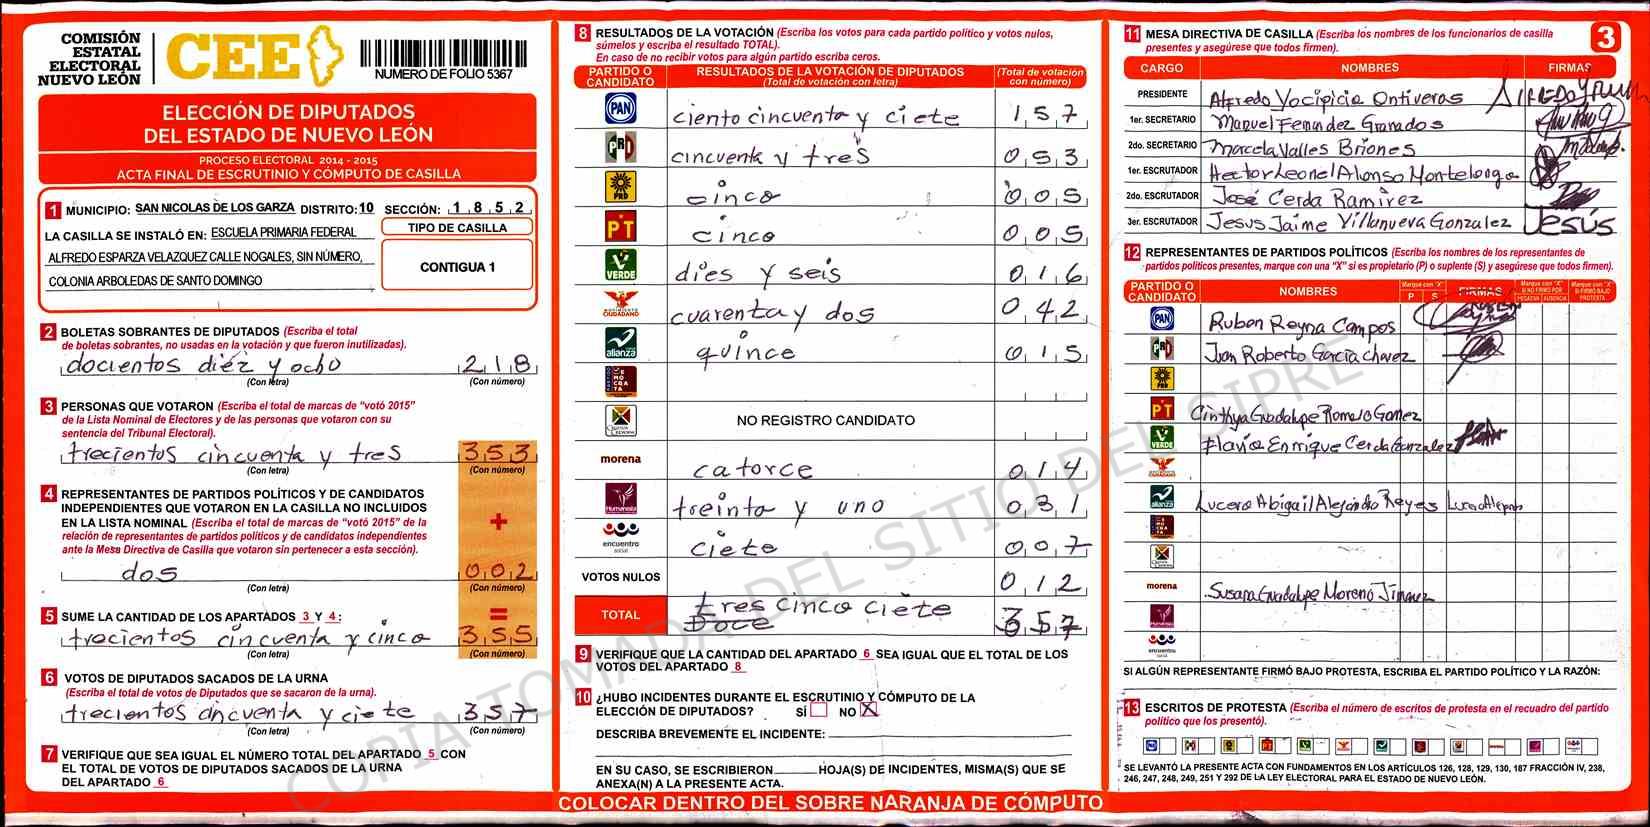 COMISIÓN
ESTATAL
ELECTORAL
NUEVO LEÓN
CEE
NUMERO DE FOLIO 5367
ELECCIÓN DE DIPUTADOS
DEL ESTADO DE NUEVO LEÓN
PROCESO ELECTORAL 2014 - 2015
ACTA FINAL DE ESCRUTINIO Y CÓMPUTO DE CASILLA
1 MUNICIPIO: SAN NICOLAS DE LOS GARZA DISTRITO: 10 SECCIÓN: 1 8 5 2
LA CASILLA SE INSTALÓ EN: ESCUELA PRIMARIA FEDERAL
ALFREDO ESPARZA VELAZQUEZ CALLE NOGALES, SIN NÚMERO,
COLONIA ARBOLEDAS DE SANTO DOMINGO
TIPO DE CASILLA
CONTIGUA 1
2 BOLETAS SOBRANTES DE DIPUTADOS (Escriba el total
de boletas sobrantes, no usadas en la votación y que fueron inutilizadas).
docientos diez y ocho 218
(Con letra) (Con número)
3 PERSONAS QUE VOTARON (Escriba el total de marcas de "votó 2015"
de la Lista Nominal de Electores y de las personas que votaron con su
sentencia del Tribunal Electoral).
trecientos cincuenta y tres 353
(Con letra) (Con número)
4 REPRESENTANTES DE PARTIDOS POLÍTICOS Y DE CANDIDATOS
INDEPENDIENTES QUE VOTARON EN LA CASILLA NO INCLUIDOS
EN LA LISTA NOMINAL (Escriba el total de marcas de "votó 2015" de la
relación de representantes de partidos políticos y de candidatos independientes
ante la Mesa Directiva de Casilla que votaron sin pertenecer a esta sección).
+
dos 002
(Con letra) (Con número)
5 SUME LA CANTIDAD DE LOS APARTADOS 3 Y 4:
=
trecientos cincuenta y cinco 355
(Con letra) (Con número)
6 VOTOS DE DIPUTADOS SACADOS DE LA URNA
(Escriba el total de votos de Diputados que se sacaron de la urna).
trecientos cincuenta y ciete 357
(Con letra) (Con número)
7 VERIFIQUE QUE SEA IGUAL EL NÚMERO TOTAL DEL APARTADO 5 CON
EL TOTAL DE VOTOS DE DIPUTADOS SACADOS DE LA URNA
DEL APARTADO 6
8 RESULTADOS DE LA VOTACIÓN (Escriba los votos para cada partido político y votos nulos,
súmelos y escriba el resultado TOTAL).
En caso de no recibir votos para algún partido escriba ceros.
PARTIDO O CANDIDATO
RESULTADOS DE LA VOTACIÓN DE DIPUTADOS
(Total de votación con letra)
(Total de votación con número)
PAN ciento cincuenta y ciete 157
PRI cincuenta y tres 053
PRD cinco 005
PT cinco 005
VERDE dies y seis 016
MOVIMIENTO CIUDADANO cuarenta y dos 042
alianza quince 015
NO REGISTRO CANDIDATO
morena catorce 014
Humanista treinta y uno 031
encuentro social ciete 007
VOTOS NULOS 012
TOTAL tres cinco ciete 357
Doce
9 VERIFIQUE QUE LA CANTIDAD DEL APARTADO 6 SEA IGUAL QUE EL TOTAL DE LOS
VOTOS DEL APARTADO 8
10 ¿HUBO INCIDENTES DURANTE EL ESCRUTINIO Y CÓMPUTO DE LA
ELECCIÓN DE DIPUTADOS? SÍ NO X
DESCRIBA BREVEMENTE EL INCIDENTE:
EN SU CASO, SE ESCRIBIERON HOJA(S) DE INCIDENTES, MISMA(S) QUE SE
ANEXA(N) A LA PRESENTE ACTA.
COLOCAR DENTRO DEL SOBRE NARANJA DE CÓMPUTO
11 MESA DIRECTIVA DE CASILLA (Escriba los nombres de los funcionarios de casilla
presentes y asegúrese que todos firmen).
3
CARGO NOMBRES FIRMAS
PRESIDENTE Alfredo Yocipicio Ontiveros
1er. SECRETARIO Manuel Fernandez Granados
2do. SECRETARIO Marcela Valles Briones
1er. ESCRUTADOR Hector Leonel Alonso Montelongo
2do. ESCRUTADOR José Cerda Ramirez
3er. ESCRUTADOR Jesus Jaime Villanueva Gonzalez Jesús
12 REPRESENTANTES DE PARTIDOS POLÍTICOS (Escriba los nombres de los representantes de
partidos políticos presentes, marque con una "X" si es propietario (P) o suplente (S) y asegúrese que todos firmen).
PARTIDO O CANDIDATO
NOMBRES
Marque con "X"
P S
FIRMAS
Marque con "X" SI NO FIRMÓ POR
NEGATIVA AUSENCIA
Marque con "X" SI FIRMÓ BAJO PROTESTA
PAN Ruben Reyna Campos
PRI Juan Roberto Garcia Chavez
PRD
PT Cinthya Guadalupe Romero Gomez
VERDE Flavio Enrique Cerda Gonzalez
alianza Lucero Abigail Alejandro Reyes
morena Susana Guadalupe Moreno Jimenez
Humanista
encuentro social
SI ALGÚN REPRESENTANTE FIRMÓ BAJO PROTESTA, ESCRIBA EL PARTIDO POLÍTICO Y LA RAZÓN:
13 ESCRITOS DE PROTESTA (Escriba el número de escritos de protesta en el recuadro del partido
político que los presentó).
SE LEVANTÓ LA PRESENTE ACTA CON FUNDAMENTOS EN LOS ARTÍCULOS 126, 128, 129, 130, 187 FRACCIÓN IV, 238,
246, 247, 248, 249, 251 Y 292 DE LA LEY ELECTORAL PARA EL ESTADO DE NUEVO LEÓN.
COPIA TOMADA DEL SITIO DEL SIPRE